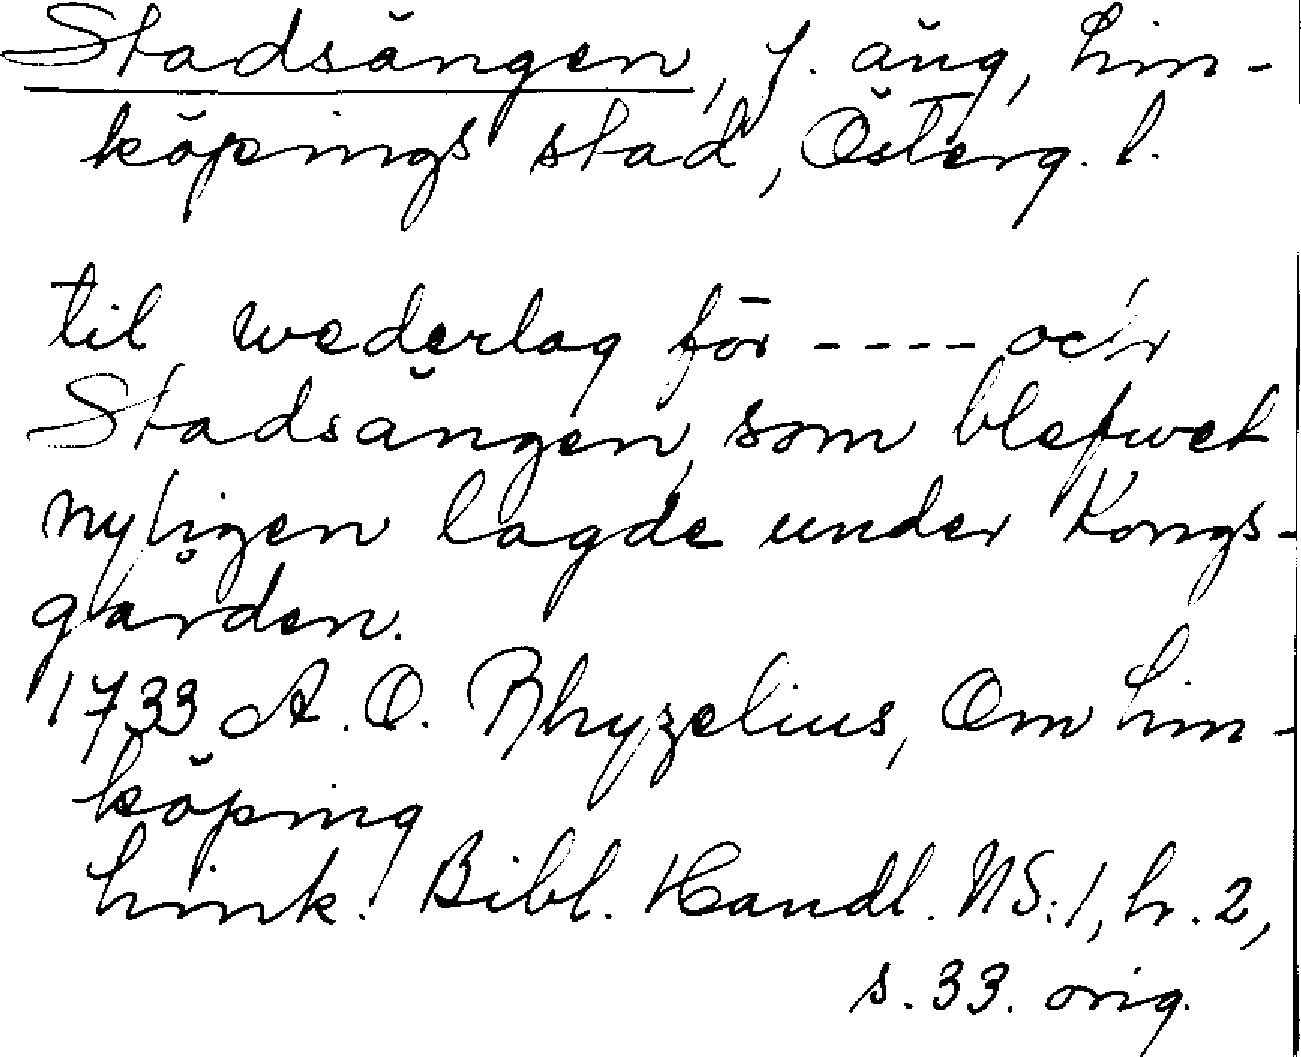 Stadsängen, f. äng, Lin-
köpings stad, Österg. l.
til wederlag för ---- och
Stadsängen, som blefwet
nyligen lagde under Kongs-
gården.
1733 A. O. Rhyzelius, Om Lin-
köping
Link. Bibl. Handl. NS:1, h. 2,
s. 33. orig.